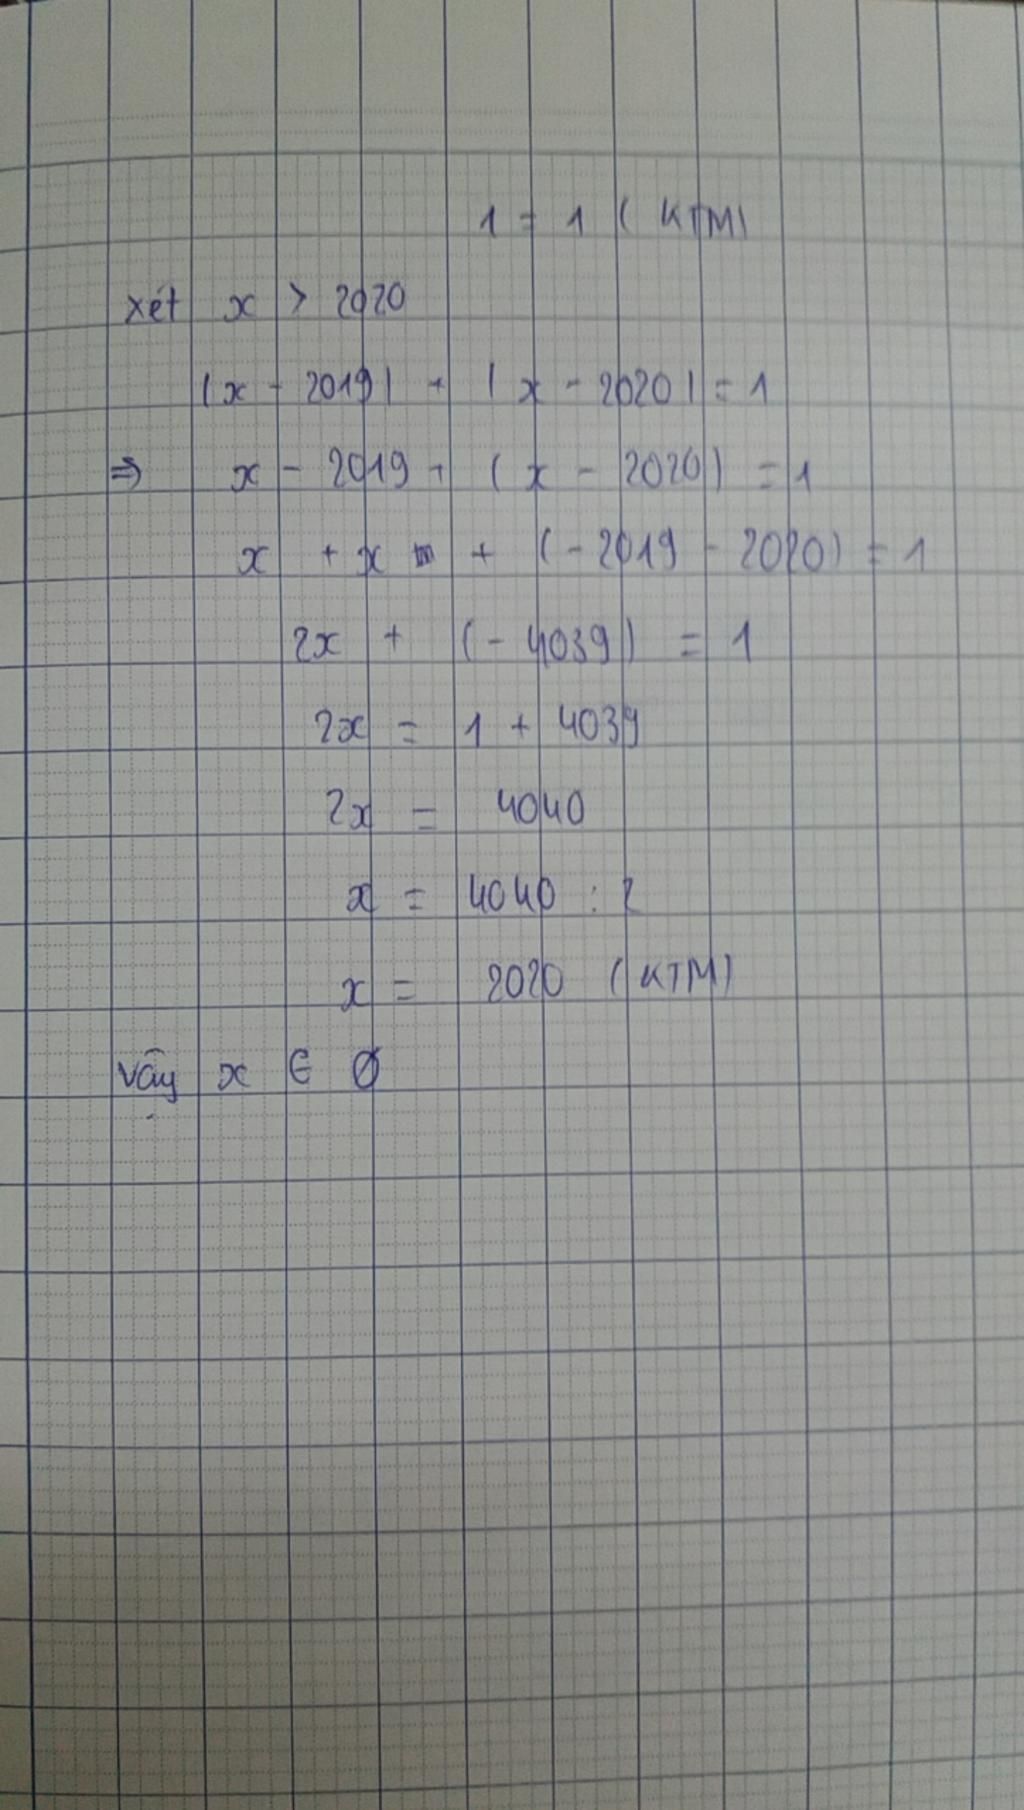 1 = 1 ( KTM)
xét x > 2020
|x - 2019| + |x - 2020| = 1
⇒ x - 2019 + (x - 2020) = 1
x + x + (-2019 - 2020) = 1
2x + (-4039) = 1
2x = 1 + 4039
2x = 4040
x = 4040 : 2
x = 2020 (KTM)
vậy x ∈ Ø